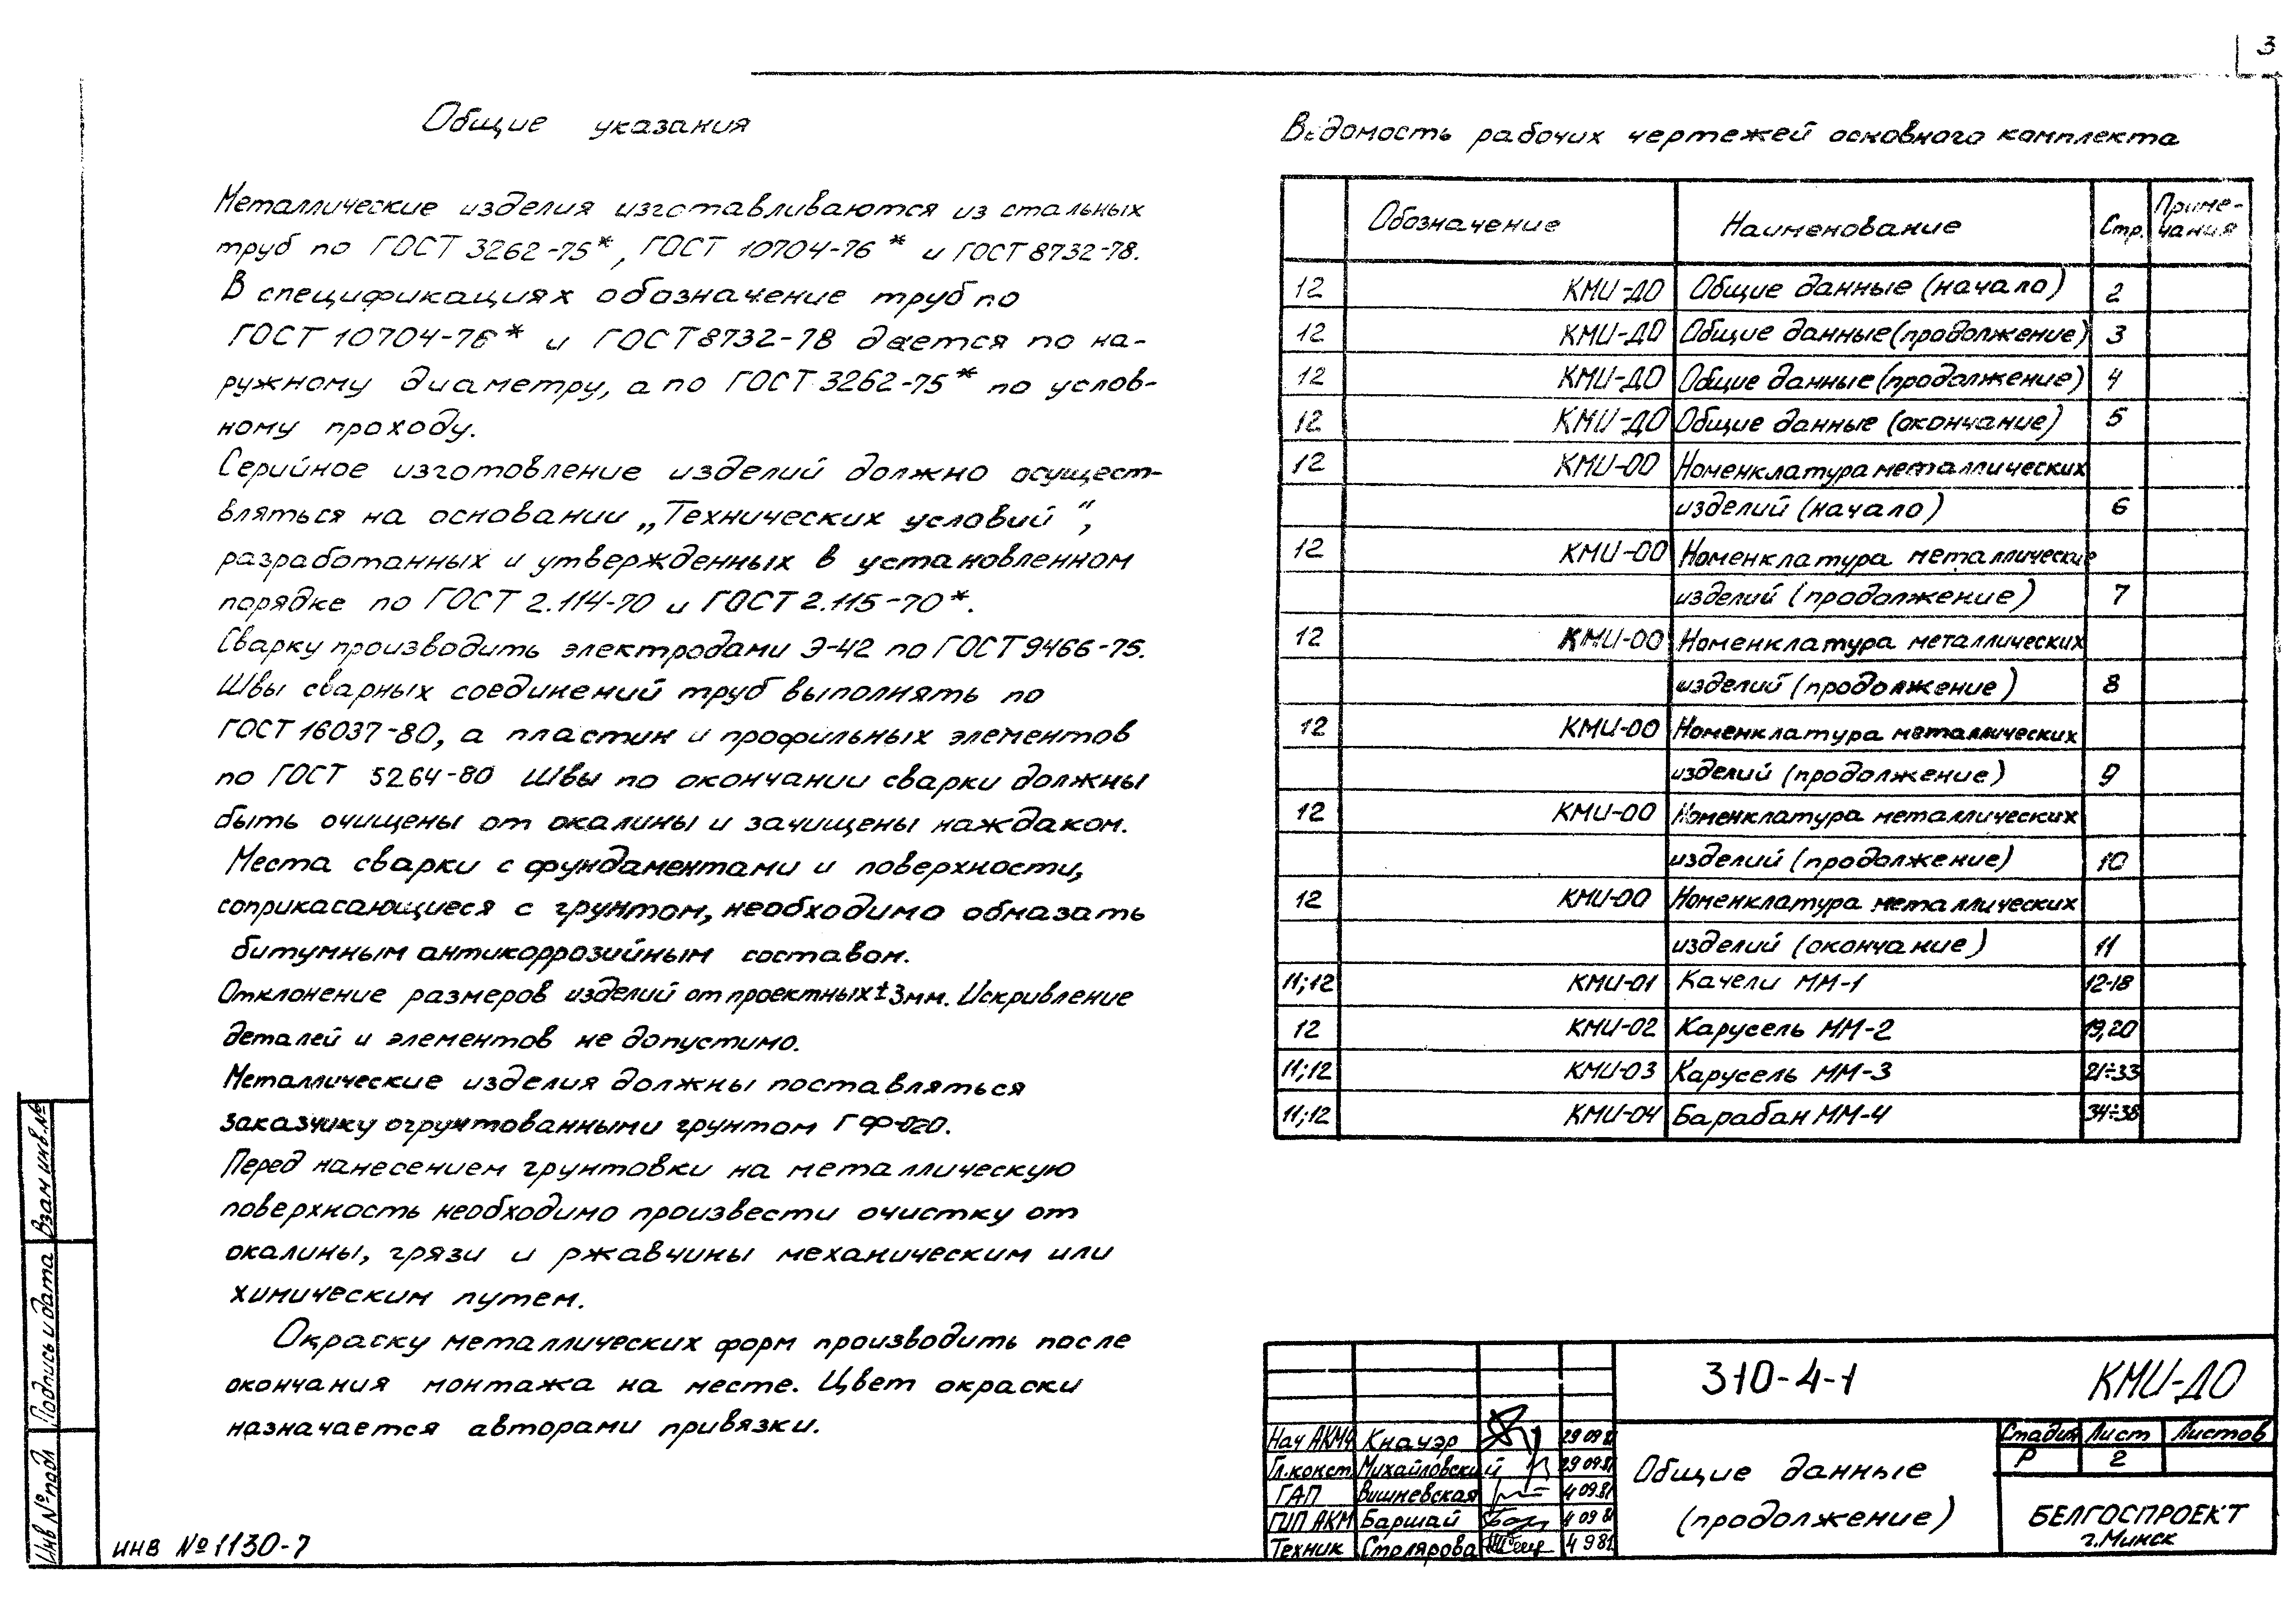 3
Общие указания
Металлические изделия изготавливаются из стальных
труб по ГОСТ 3262-75*, ГОСТ 10704-76* и ГОСТ 8732-78.
В спецификациях обозначение труб по
ГОСТ 10704-76* и ГОСТ 8732-78 дается по на-
ружному диаметру, а по ГОСТ 3262-75* по услов-
ному проходу.
Серийное изготовление изделий должно осущест-
вляться на основании „Технических условий“,
разработанных и утвержденных в установленном
порядке по ГОСТ 2.114-70 и ГОСТ 2.115-70*.
Сварку производить электродами Э-42 по ГОСТ 9466-75.
Швы сварных соединений труб выполнять по
ГОСТ 16037-80, а пластин и профильных элементов
по ГОСТ 5264-80 Швы по окончании сварки должны
быть очищены от окалины и зачищены наждаком.
Места сварки с фундаментами и поверхности,
соприкасающиеся с грунтом, необходимо обмазать
битумным антикоррозийным составом.
Отклонение размеров изделий от проектных ±3мм. Искривление
деталей и элементов не допустимо.
Металлические изделия должны поставляться
заказчику огрунтованными грунтом ГФ-020.
Перед нанесением грунтовки на металлическую
поверхность необходимо произвести очистку от
окалины, грязи и ржавчины механическим или
химическим путем.
Окраску металлических форм производить после
окончания монтажа на месте. Цвет окраски
назначается авторами привязки.
Ведомость рабочих чертежей основного комплекта
Обозначение Наименование Стр. Приме-
чания
12 КМИ-ДО Общие данные (начало) 2
12 КМИ-ДО Общие данные (продолжение) 3
12 КМИ-ДО Общие данные (продолжение) 4
12 КМИ-ДО Общие данные (окончание) 5
12 КМИ-00 Номенклатура металлических
изделий (начало) 6
12 КМИ-00 Номенклатура металлические
изделий (продолжение) 7
12 КМИ-00 Номенклатура металлических
изделий (продолжение) 8
12 КМИ-00 Номенклатура металлических
изделий (продолжение) 9
12 КМИ-00 Номенклатура металлических
изделий (продолжение) 10
12 КМИ-00 Номенклатура металлических
изделий (окончание) 11
11;12 КМИ-01 Качели ММ-1 12-18
12 КМИ-02 Карусель ММ-2 19,20
11;12 КМИ-03 Карусель ММ-3 21÷33
11;12 КМИ-04 Барабан ММ-4 34÷38
310-4-1 КМИ-ДО
Нач АКМ4 Кнауэр 29 09 81
Гл.конст Михайловский 29 09.81
ГАП Вишневская 4 09.81
ГИП АКМ Баршай 4 09 81
Техник Столярова 4 9 81
Общие данные
(продолжение)
Стадия Лист Листов
Р 2
БЕЛГОСПРОЕКТ
г.Минск
Взам инв.№
Подпись и дата
Инв № подл
ИНВ № 1130-7